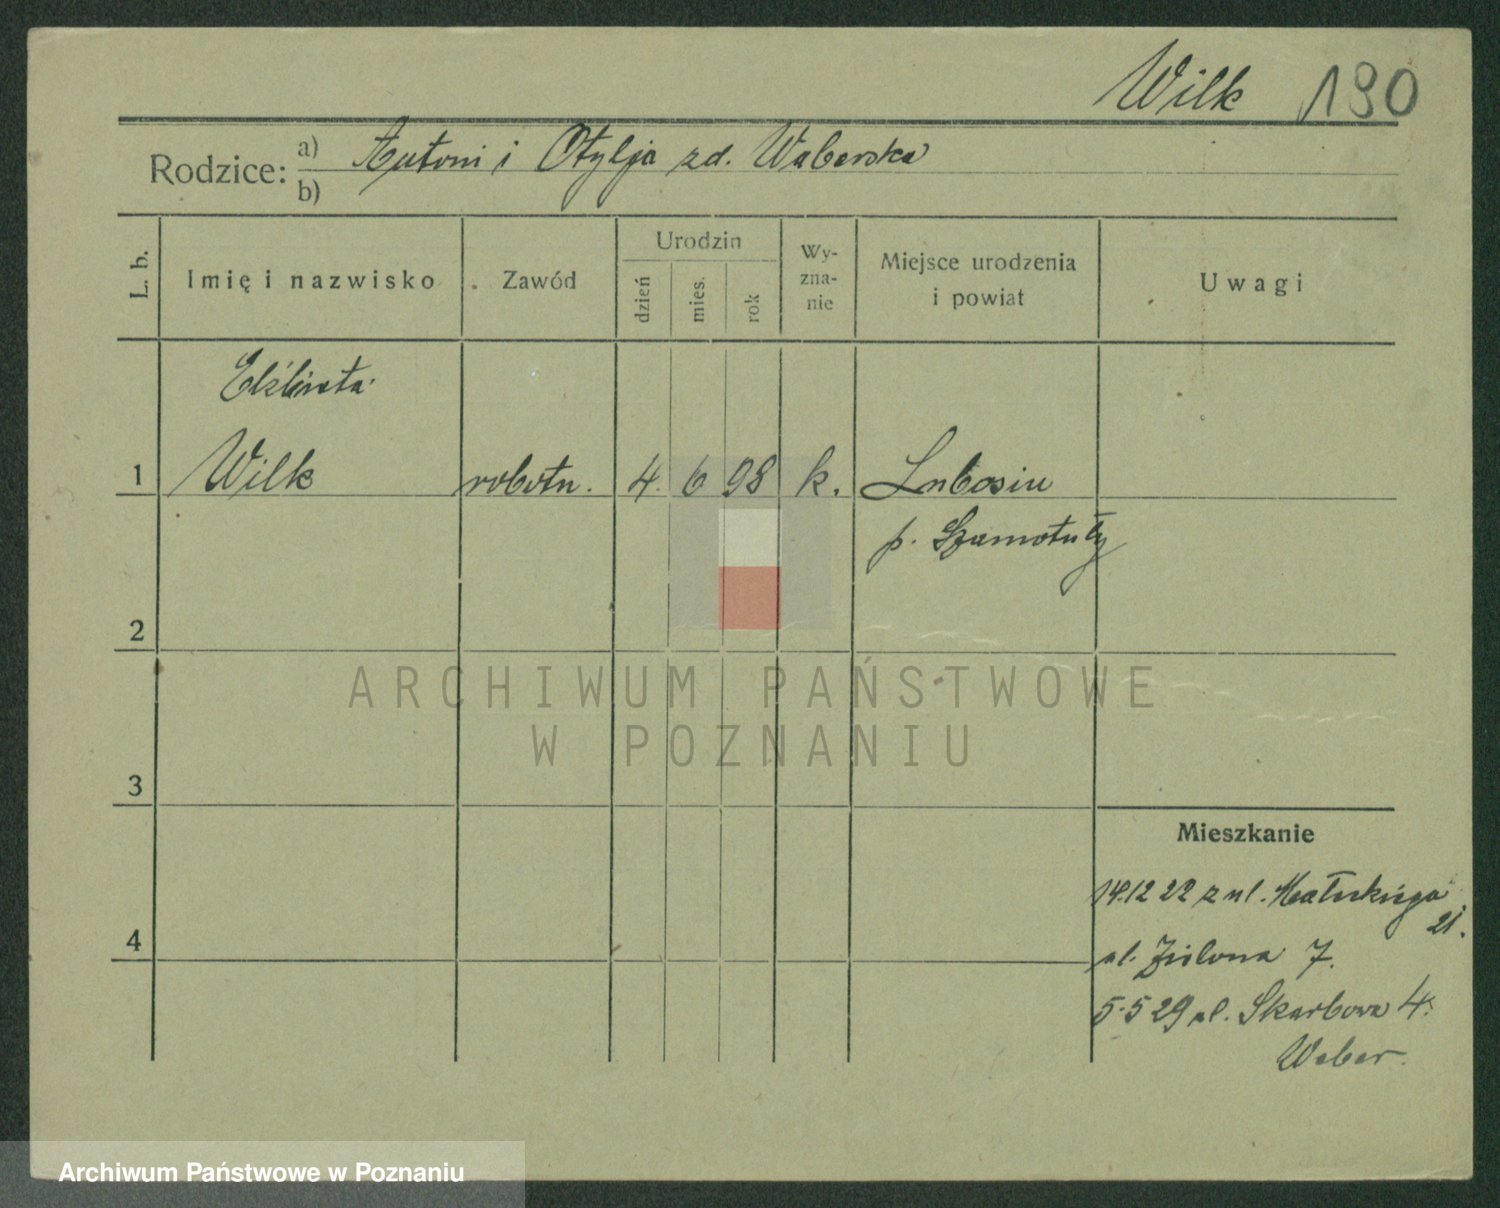 Wilk 190
Rodzice: a) Antoni i Otylja zd. Waberska
b)
L. b. Imię i nazwisko Zawód Urodzin dzień mies. rok Wy-zna-nie Miejsce urodzenia i powiat Uwagi
Elżbieta
1 Wilk robotn. 4. 6 98 k. Lubosin
p. Szamotuły
2
ARCHIWUM PAŃSTWOWE
W POZNANIU
3
Mieszkanie
14.12 22 z ul. Małeckiego
21.
4 ul. Zielona 7.
5.5 29 ul. Skarbowa 4.
Weber.
Archiwum Państwowe w Poznaniu